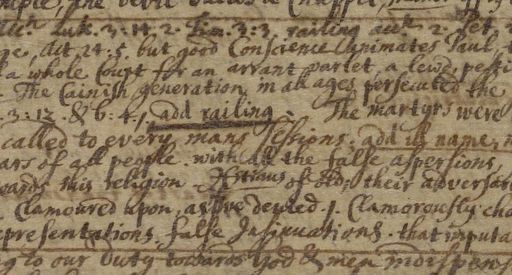 mple, the devil builds a Chappel,
Luk. 3. 14, 2. Tim. 3: 3, railing acc. 2. Pet.
ge, Act 24. 5, but good Conscience Animates Paul, t
a whole Court for an arrant varlet, a lewd pesti
The Cainish generation in all ages persecuted the
. 3. 12. & 6. 4, add railing The martyrs were
called to every mans sessions. add ill names,
ars of all people, with all the false aspersions,
wards this religion of old, their adversar
Clamoured upon, as we denied. 1. Clamorously cha
epresentations, false Insinuations. that imputa
g to our duty towards God & men